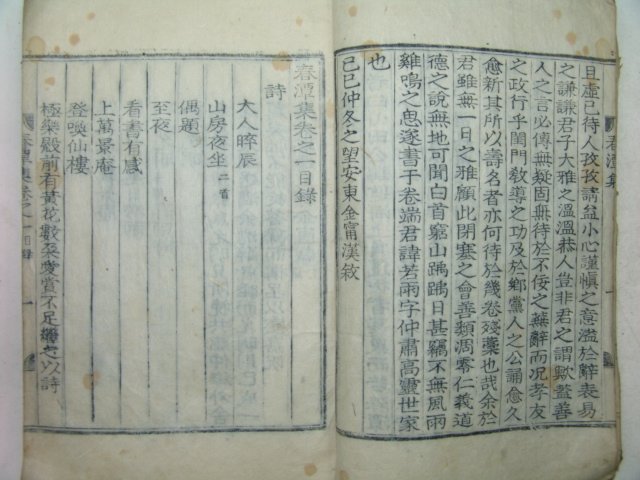 且虛已待人孜孜請益小心謹愼之意溢於辭表易
之謙謙君子大雅之溫溫恭人豈非君之謂歟蓋善
人之言必傳無疑固無待於不佞之蕪辭而况孝友
之政行乎閨門敎導之功及於鄕黨人之公誦愈久
愈新其所以壽名者亦何待於幾卷殘藁也哉余於
君雖無一日之雅顧此閉塞之會善類凋零仁義道
德之說無地可聞白首窮山踽踽日甚竊不無風雨
雞鳴之思遂書于卷端君諱若雨字仲肅高靈世家
也
己巳仲冬之望安東金甯漢敘
春潭集
一
春潭集卷之一目錄
詩
大人晬辰
山房夜坐 二首
偶題
至夜
看書有感
上萬景庵
登喚仙樓
極樂殿前有黃花數朶愛賞不足繼之以詩
春潭集卷之一目錄
一